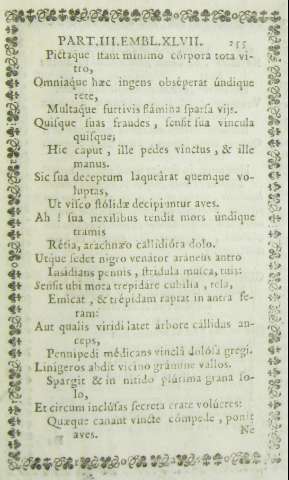 PART.III.EMBL.XLVII. 255
Pictaque stant minimo córpora tota vi-
tro,
Omniaque hæc ingens obséperat úndique
rete,
Multaque furtivis stámina sparsa vijs.
Quisque suas fraudes, sensit sua vincula
quisque;
Hic caput, ille pedes vinctus, & ille
manus.
Sic sua deceptum laqueârat quemque vo-
luptas,
Ut visco stólidæ decipiuntur aves.
Ah ! sua nexilibus tendit mors úndique
tramis
Rétia, arachnæo callidióra dolo.
Utque sedet nigro venátor aráneus antro
Insidians pennis, stridula musca, tuis:
Sensit ubi mota trepidare cubilia, tela,
Emicat, & trépidam raptat in antra fe-
ram:
Aut qualis viridi latet árbore cállidus au-
ceps,
Pennipedi médicans vinclâ dolósa gregi.
Linigeros abdit vicino grámine vallos.
Spargit & in nitido plúrima grana so-
lo,
Et circum inclúsas secreta crate volúcres:
Quæque canant vinctę cómpede, ponit
aves.
Ne